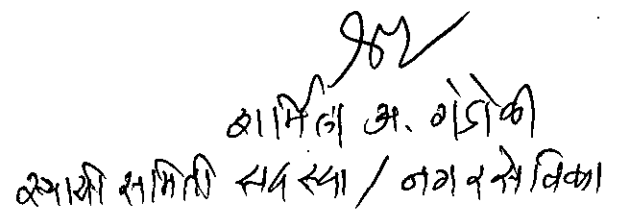 शर्मिला अ. गंडोळी
स्थायी समिती सदस्या / नगरसेविका